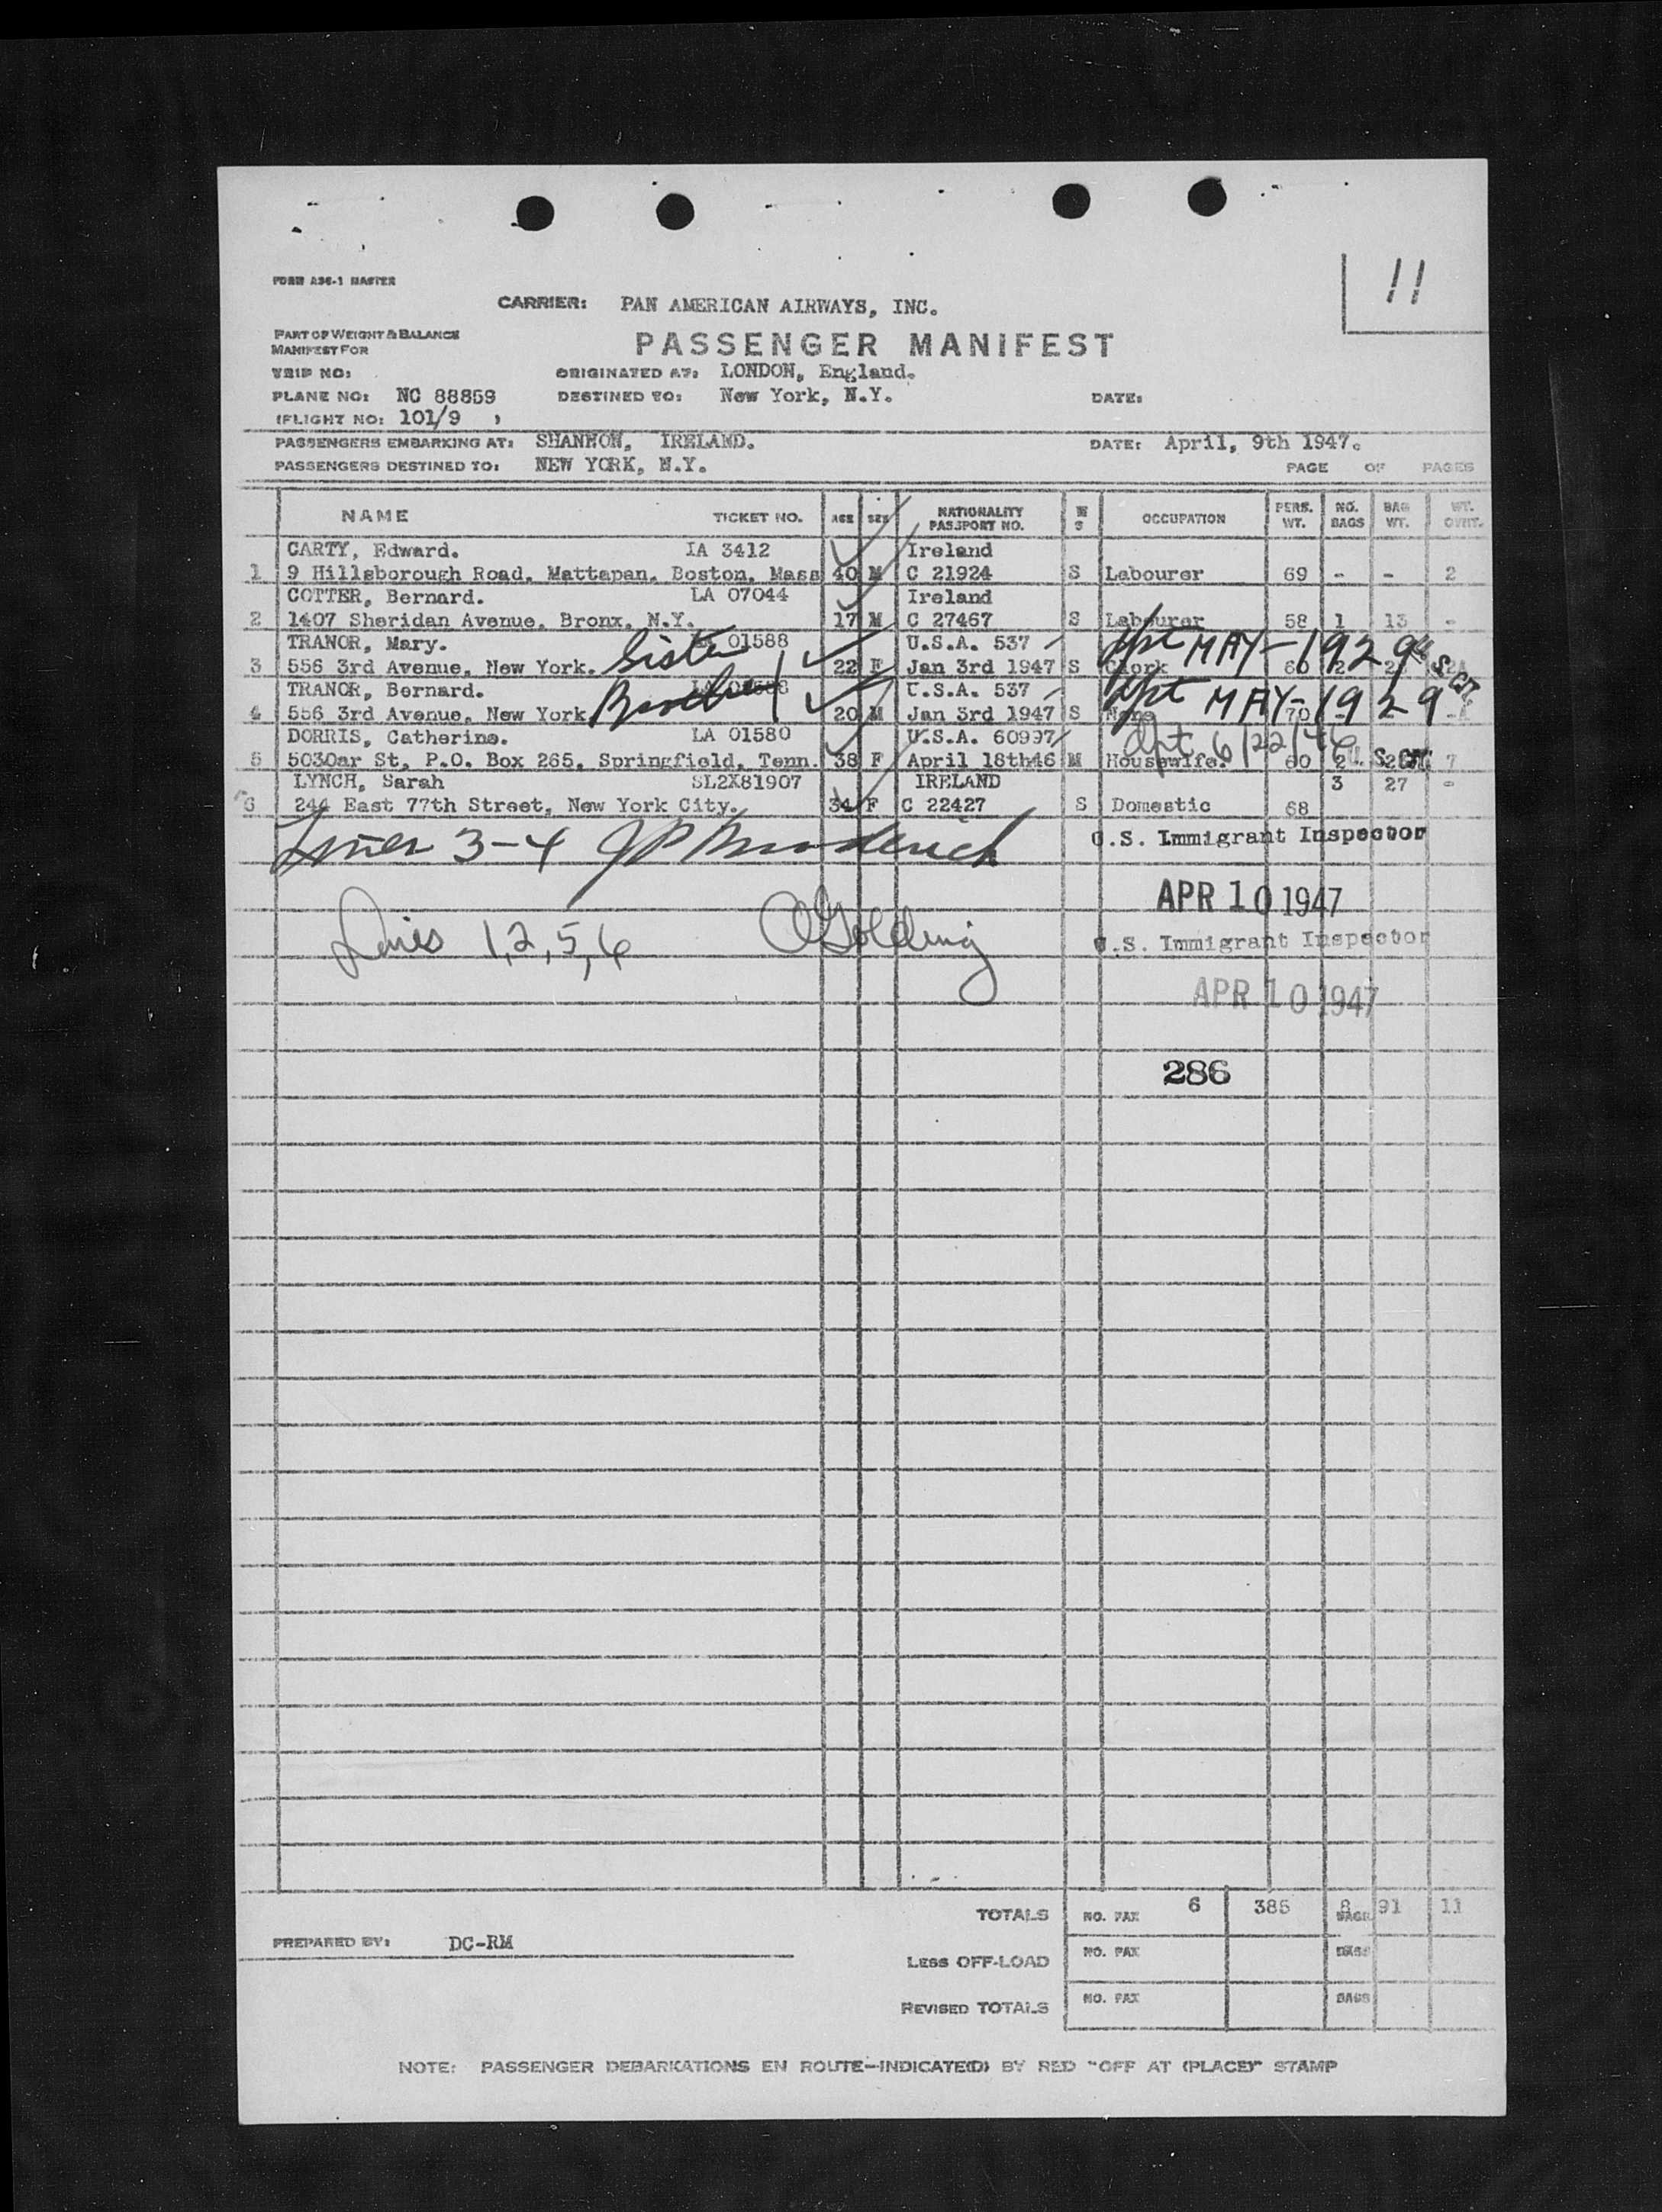 11
FORM A36-1 MASTER
CARRIER: PAN AMERICAN AIRWAYS, INC.
PART OF WEIGHT & BALANCE
MANIFEST FOR
PASSENGER MANIFEST
TRIP NO: ORIGINATED AT: LONDON, England.
PLANE NO: NC 88859 DESTINED TO: New York, N.Y. DATE:
(FLIGHT NO: 101/9 )
PASSENGERS EMBARKING AT: SHANNON, IRELAND. DATE: April, 9th 1947.
PASSENGERS DESTINED TO: NEW YORK, N.Y. PAGE OF PAGES
NAME TICKET NO. AGE SEX NATIONALITY PASSPORT NO. M S OCCUPATION PERS. WT. NO. BAGS BAG WT. WT. OVWT.
CARTY, Edward. IA 3412 Ireland
1 9 Hillsborough Road, Mattapan, Boston, Mass 40 M C 21924 S Labourer 69 - - 2
COTTER, Bernard. LA 07044 Ireland
2 1407 Sheridan Avenue, Bronx, N.Y. 17 M C 27467 S Labourer 58 1 13 -
TRANOR, Mary. 01588 U.S.A. 537
3 556 3rd Avenue, New York. Sister 22 F Jan 3rd 1947 S Clerk 60 2 dpt MAY-1929 U.S. CIT.
TRANOR, Bernard. U.S.A. 537
4 556 3rd Avenue, New York Brother 20 M Jan 3rd 1947 S None 70 dpt MAY-1929
DORRIS, Catherine. LA 01580 U.S.A. 60997 dpt 6/22/46
5 5030ar St, P.O. Box 265, Springfield, Tenn. 38 F April 18th46 M Housewife. 60 2 U.S. CIT. 7
LYNCH, Sarah SL2X81907 IRELAND 3 27 -
6 244 East 77th Street, New York City. 34 F C 22427 S Domestic 68
Lines 3-4 JP Broderick U.S. Immigrant Inspector
APR 10 1947
Lines 1,2,5,6 Golding U.S. Immigrant Inspector
APR 10 1947
286
TOTALS NO. PAX 6 385 8 BAGS 91 11
PREPARED BY: DC-RM
LESS OFF-LOAD NO. PAX BAGS
REVISED TOTALS NO. PAX BAGS
NOTE: PASSENGER DEBARKATIONS EN ROUTE—INDICATE(D) BY RED "OFF AT (PLACE)" STAMP